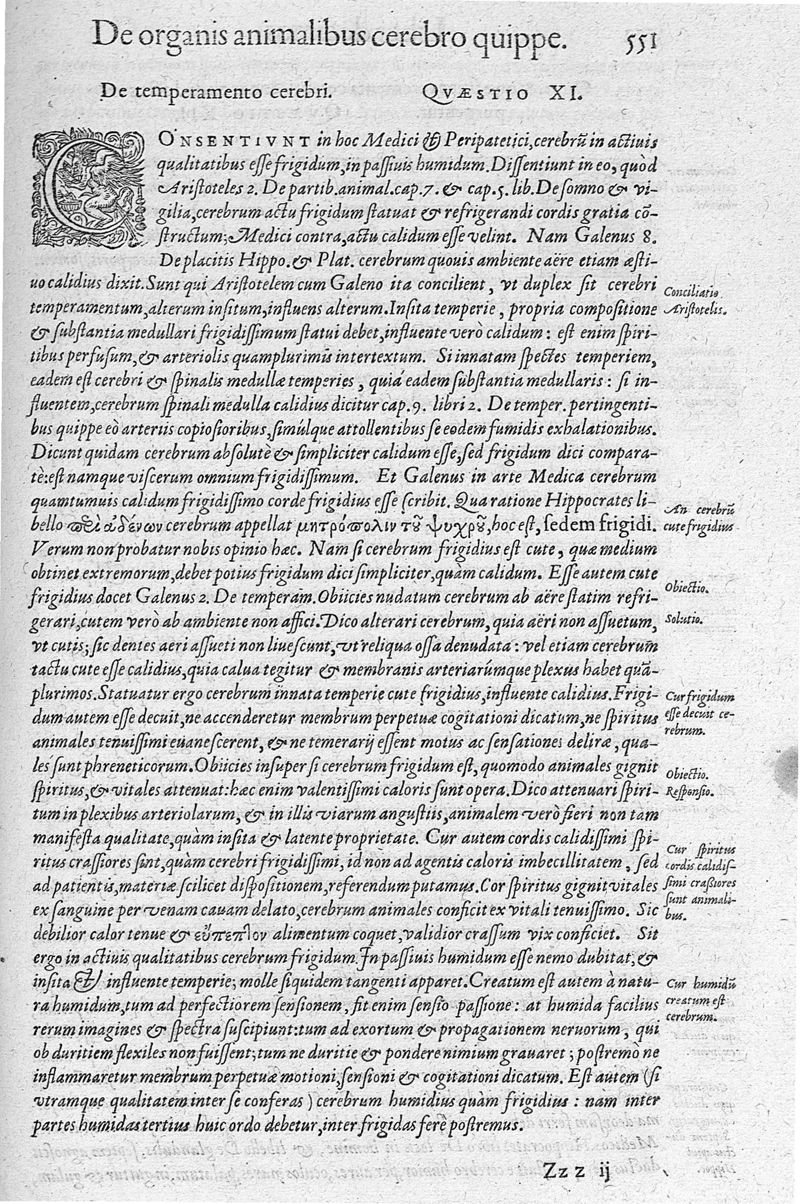 De organis animalibus cerebro quippe. 551
De temperamento cerebri. QVÆSTIO XI.
CONSENTIVNT in hoc Medici & Peripatetici, cerebrū in actiuis
qualitatibus esse frigidum, in passiuis humidum. Dissentiunt in eo, quòd
Aristoteles 2. De partib. animal. cap. 7. & cap. 5. lib. De somno & vi-
gilia, cerebrum actu frigidum statuat & refrigerandi cordis gratia cō-
structum; Medici contra, actu calidum esse velint. Nam Galenus 8.
De placitis Hippo. & Plat. cerebrum quouis ambiente aëre etiam æsti-
uo calidius dixit. Sunt qui Aristotelem cum Galeno ita concilient, vt duplex sit cerebri
temperamentum, alterum insitum, influens alterum. Insita temperie, propria compositione
& substantia medullari frigidissimum statui debet, influente verò calidum: est enim spiri-
tibus perfusum, & arteriolis quamplurimis intertextum. Si innatam spectes temperiem,
eadem est cerebri & spinalis medullæ temperies, quia eadem substantia medullaris: si in-
fluentem, cerebrum spinali medulla calidius dicitur cap. 9. libri 2. De temper. pertingenti-
bus quippe eò arteriis copiosioribus, simúlque attollentibus se eodem fumidis exhalationibus.
Dicunt quidam cerebrum absolutè & simpliciter calidum esse, sed frigidum dici compara-
tè: est namque viscerum omnium frigidissimum. Et Galenus in arte Medica cerebrum
quamtumuis calidum frigidissimo corde frigidius esse scribit. Qua ratione Hippocrates li-
bello περὶ ἀδένων cerebrum appellat μητρόπολιν τοῦ ψυχροῦ, hoc est, sedem frigidi.
Verum non probatur nobis opinio hæc. Nam si cerebrum frigidius est cute, quæ medium
obtinet extremorum, debet potius frigidum dici simpliciter, quàm calidum. Esse autem cute
frigidius docet Galenus 2. De temperam. Obiicies nudatum cerebrum ab aëre statim refri-
gerari, cutem verò ab ambiente non affici. Dico alterari cerebrum, quia aëri non assuetum,
vt cutis; sic dentes aeri assueti non liuescunt, vt reliqua ossa denudata: vel etiam cerebrum
tactu cute esse calidius, quia calua tegitur & membranis arteriarúmque plexus habet quā-
plurimos. Statuatur ergo cerebrum innata temperie cute frigidius, influente calidius. Frigi-
dum autem esse decuit, ne accenderetur membrum perpetuæ cogitationi dicatum, ne spiritus
animales tenuissimi euanescerent, & ne temerarij essent motus ac sensationes deliræ, qua-
les sunt phreneticorum. Obiicies insuper si cerebrum frigidum est, quomodo animales gignit
spiritus, & vitales attenuat: hæc enim valentissimi caloris sunt opera. Dico attenuari spiri-
tum in plexibus arteriolarum, & in illis viarum angustiis, animalem verò fieri non tam
manifesta qualitate, quàm insita & latente proprietate. Cur autem cordis calidissimi spi-
ritus crassiores sint, quàm cerebri frigidissimi, id non ad agentis caloris imbecillitatem, sed
ad patientis, materiæ scilicet dispositionem, referendum putamus. Cor spiritus gignit vitales
ex sanguine per venam cauam delato, cerebrum animales conficit ex vitali tenuissimo. Sic
debilior calor tenue & εὔπεπτον alimentum coquet, validior crassum vix conficiet. Sit
ergo in actiuis qualitatibus cerebrum frigidum. In passiuis humidum esse nemo dubitat, &
insita & influente temperie; molle siquidem tangenti apparet. Creatum est autem à natu-
ra humidum, tum ad perfectiorem sensionem, fit enim sensio passione: at humida facilius
rerum imagines & spectra suscipiunt: tum ad exortum & propagationem neruorum, qui
ob duritiem flexiles non fuissent; tum ne duritie & pondere nimium grauaret; postremò ne
inflammaretur membrum perpetuæ motioni, sensioni & cogitationi dicatum. Est autem (si
vtramque qualitatem inter se conferas) cerebrum humidius quàm frigidius: nam inter
partes humidas tertius huic ordo debetur, inter frigidas ferè postremus.
Zz z ij
Conciliatio
Aristotelis.
An cerebrū
cute frigidius
Obiectio.
Solutio.
Cur frigidum
esse decuit ce-
rebrum.
Obiectio.
Responsio.
Cur spiritus
cordis calidis-
simi crassiores
sunt animali-
bus.
Cur humidū
creatum est
cerebrum.